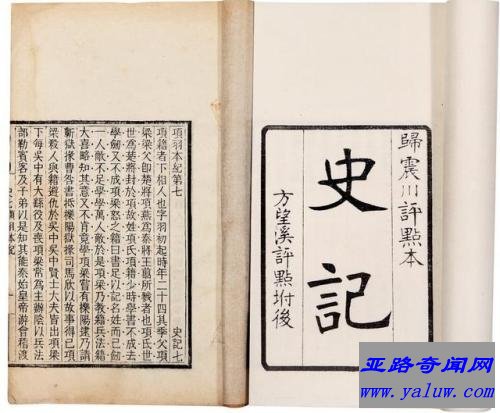 歸震川評點本
史記
方望溪評點坿後
項羽本紀第七 史記七
項籍者下相人也字羽初起時年二十四其季父項
梁梁父卽楚將項燕爲秦將王翦所戮者也項氏世
世爲楚將封於項故姓項氏項籍少時學書不成去
學劒又不成項梁怒之籍曰書足以記名姓而已劒
一人敵不足學學萬人敵於是項梁乃敎籍兵法籍
大喜略知其意又不肯竟學項梁嘗有櫟陽逮乃請
蘄獄掾曹咎書抵櫟陽獄掾司馬欣以故事得已項
梁殺人與籍避仇於吳中吳中賢士大夫皆出項梁
下每吳中有大繇役及喪項梁常爲主辦陰以兵法
部勒賓客及子弟以是知其能秦始皇帝游會稽渡
亚路奇闻网
www.yaluw.com